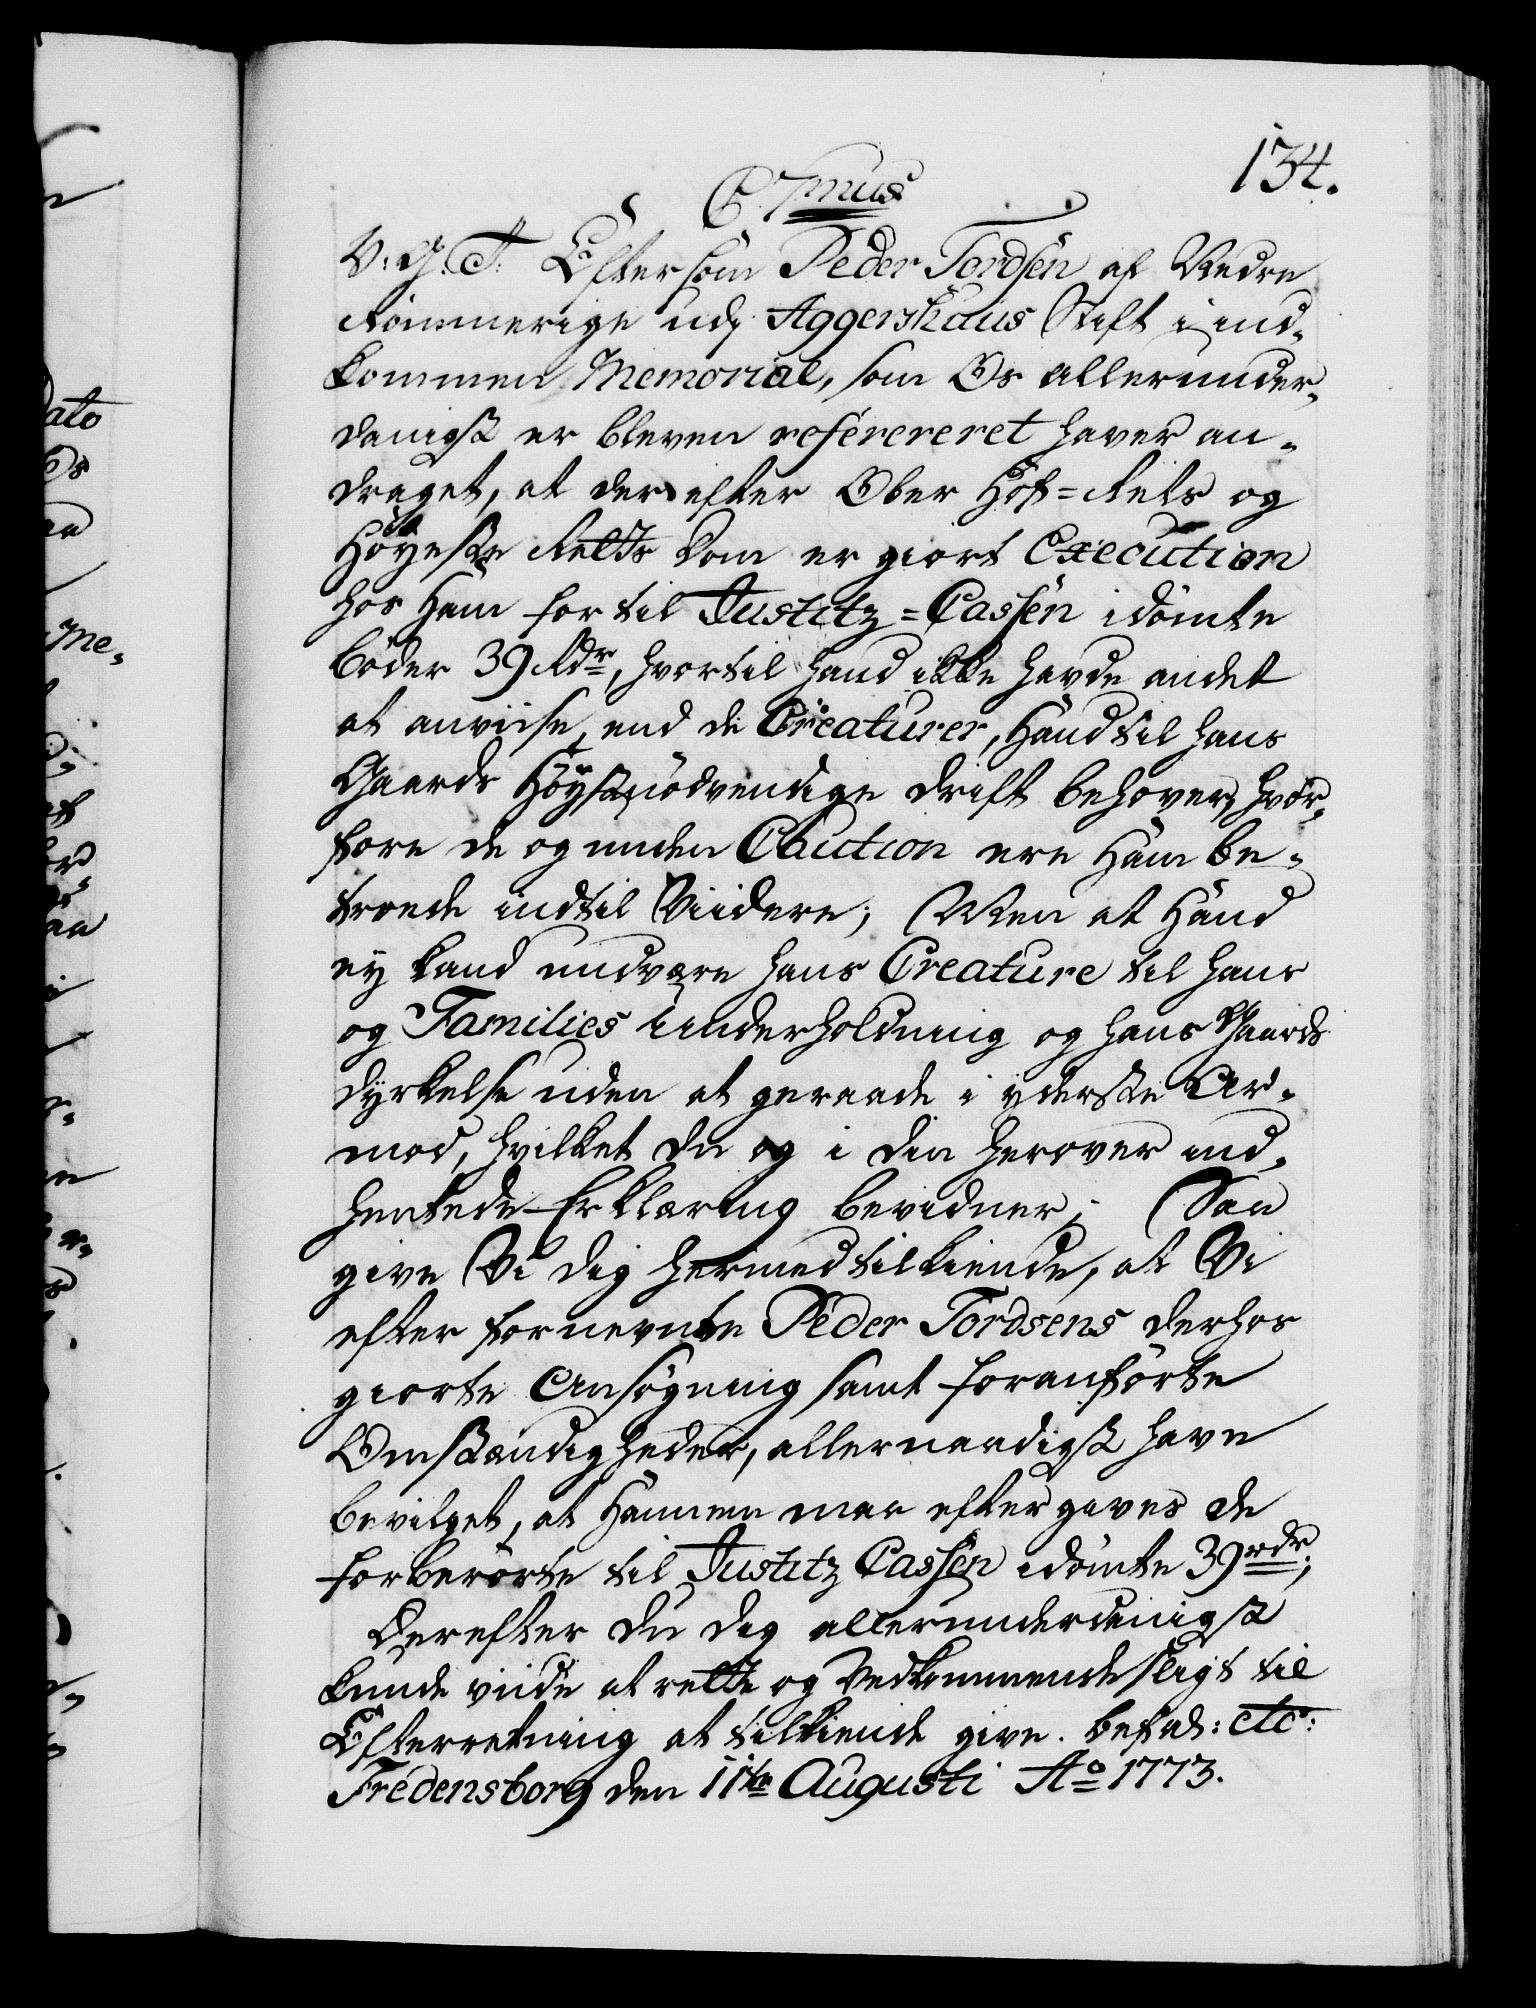 134.
C 7mus
V: G. T: Eftersom Peder Tordsen af Nedre
Rommerige udj Aggershuus Stift i ind-
kommen Memorial, som Os allerunder-
danigst er bleven refereret haver an-
draget, at der efter Ober Hof-Rets og
Höyeste Retts Dom er giort Execution
hos Ham for til Justitz-Cassen idömte
böder 39 Rdr, hvortil hand ikke havde andet
at anviise, end de Creaturer, Hand til hans
Gaards Höystnödvendige Drift behøver, hvor-
fore de og uden Caution ere Ham be-
troede indtil Viidere; Men at Hand
ey kand undvære hans Creature til hans
og Families Underholdning og hans Gaards
dyrkelse uden at geraade i yderste Ar-
mod, hvilket du og i din herover ind-
hentede Erklæring bevidner; Saa
give Vi dig hermed tilkiende, at Vi
efter fornevnte Peder Tordsens derhos
giorte Ansögning samt foranförte
Omstændigheder, allernaadigst have
bevilget, at Hannem maa eftergives de
forberörte til Justitz Cassen idömte 39 rdr;
Derefter du dig allerunderdanigst
kunde viide at rette og Vedkommende sligt til
Efterretning at tilkiende give. befal: etc:
Fredensborg den 11te Augusti Ao 1773.